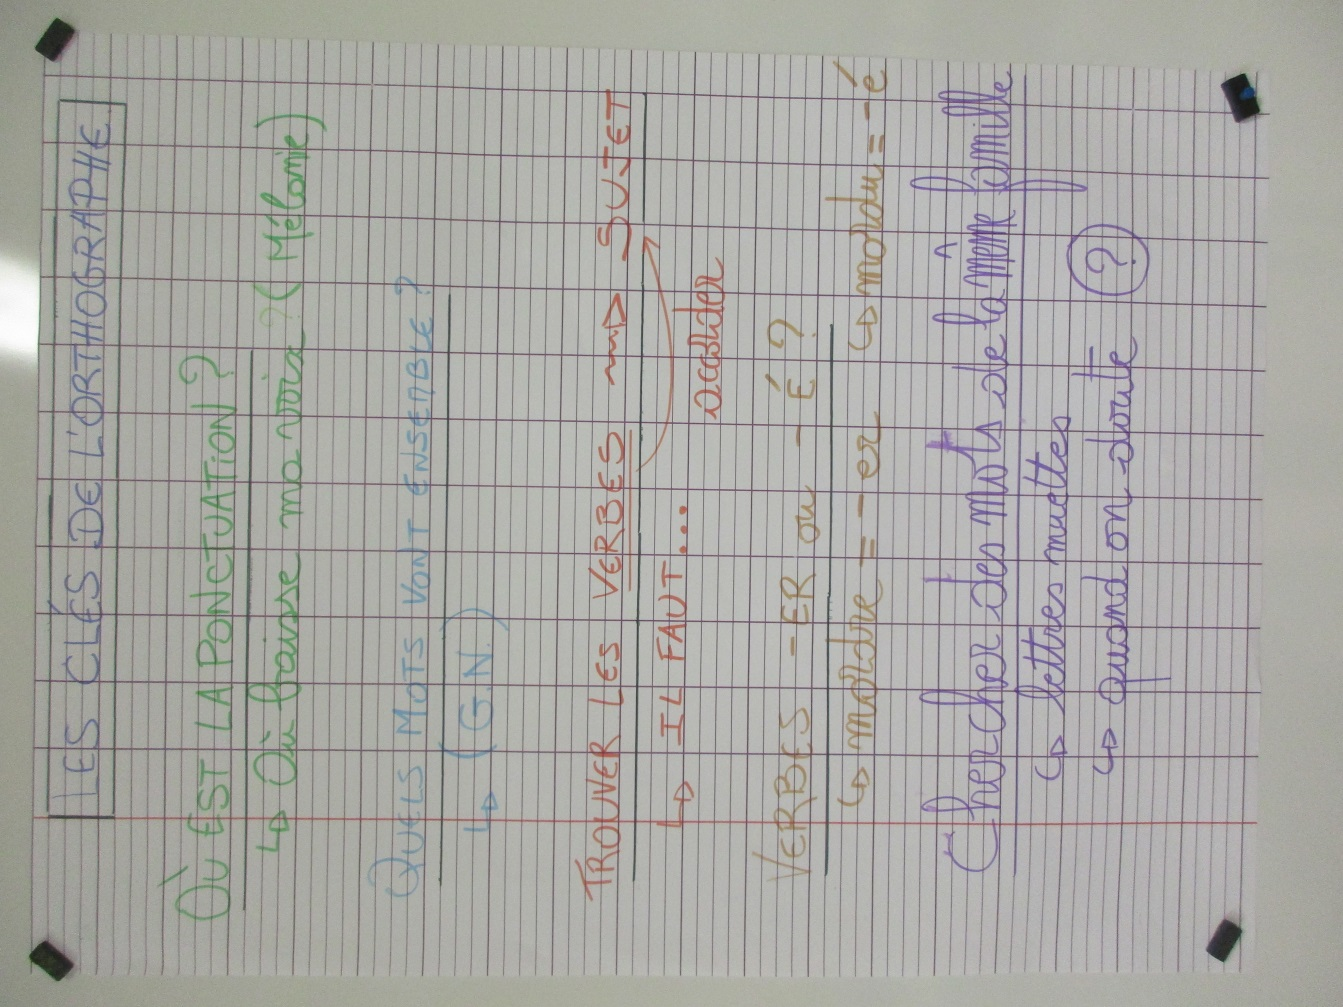 LES CLÉS DE L'ORTHOGRAPHE
OÙ EST LA PONCTUATION ?
↳ Où baisse ma voix ? (Mélanie)
QUELS MOTS VONT ENSEMBLE ?
↳ (G.N.)
TROUVER LES VERBES ⟿ SUJET
↳ IL FAUT... accorder
VERBES -ER ou -É ?
↳ mordre = -er ↳ mordu = -é
Chercher des mots de la même famille
↳ lettres muettes
↳ quand on doute ?